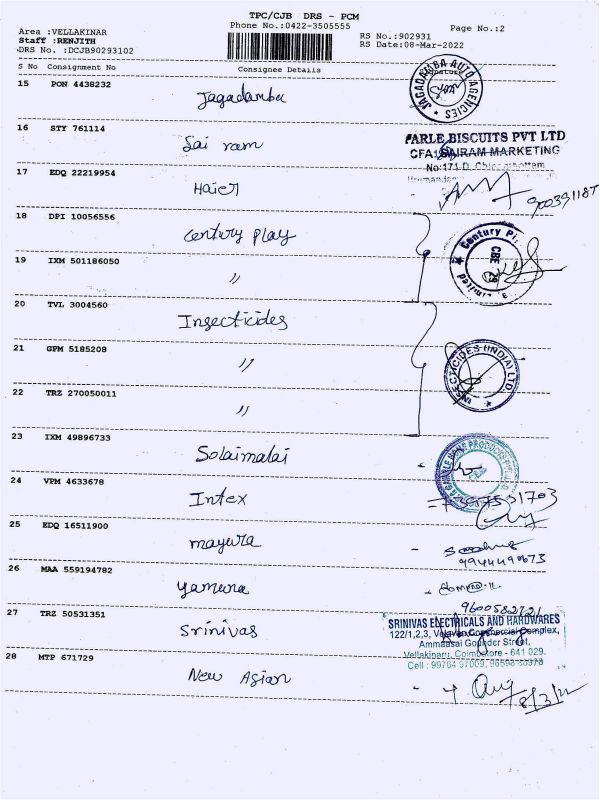 TPC/CJB DRS - PCM
Phone No.:0422-3505555
Page No.:2
Area :VELLAKINAR
Staff :RENJITH
DRS No. :DCJB90293102
RS No.:902931
RS Date:08-Mar-2022
S No Consignment No Consignee Details Signature
15 PON 4438232 Jagadamba
JAGADAMBA AUTO AGENCIES
16 STY 761114 Sai ram
PARLE BISCUITS PVT LTD
CFA: SAIRAM MARKETING
17 EDQ 22219954 Haier
18 DPI 10056556 Century play
Century
CBE
19 IXM 501186050 "
20 TVL 3004560 Insecticides
21 GPM 5185208 "
INSECTICIDES (INDIA) LTD.
22 TRZ 270050011 "
23 IXM 49896733 Solaimalai
24 VPM 4633678 Intex
25 EDQ 16511900 mayura
26 MAA 559194782 yamuna
27 TRZ 50531351 Srinivas
SRINIVAS ELECTRICALS AND HARDWARES
122/1,2,3, Commercial Complex,
Ammaasai Gounder Street,
Vellakinaru, Coimbatore - 641 029.
28 MTP 671729 New Asian
8/3/22